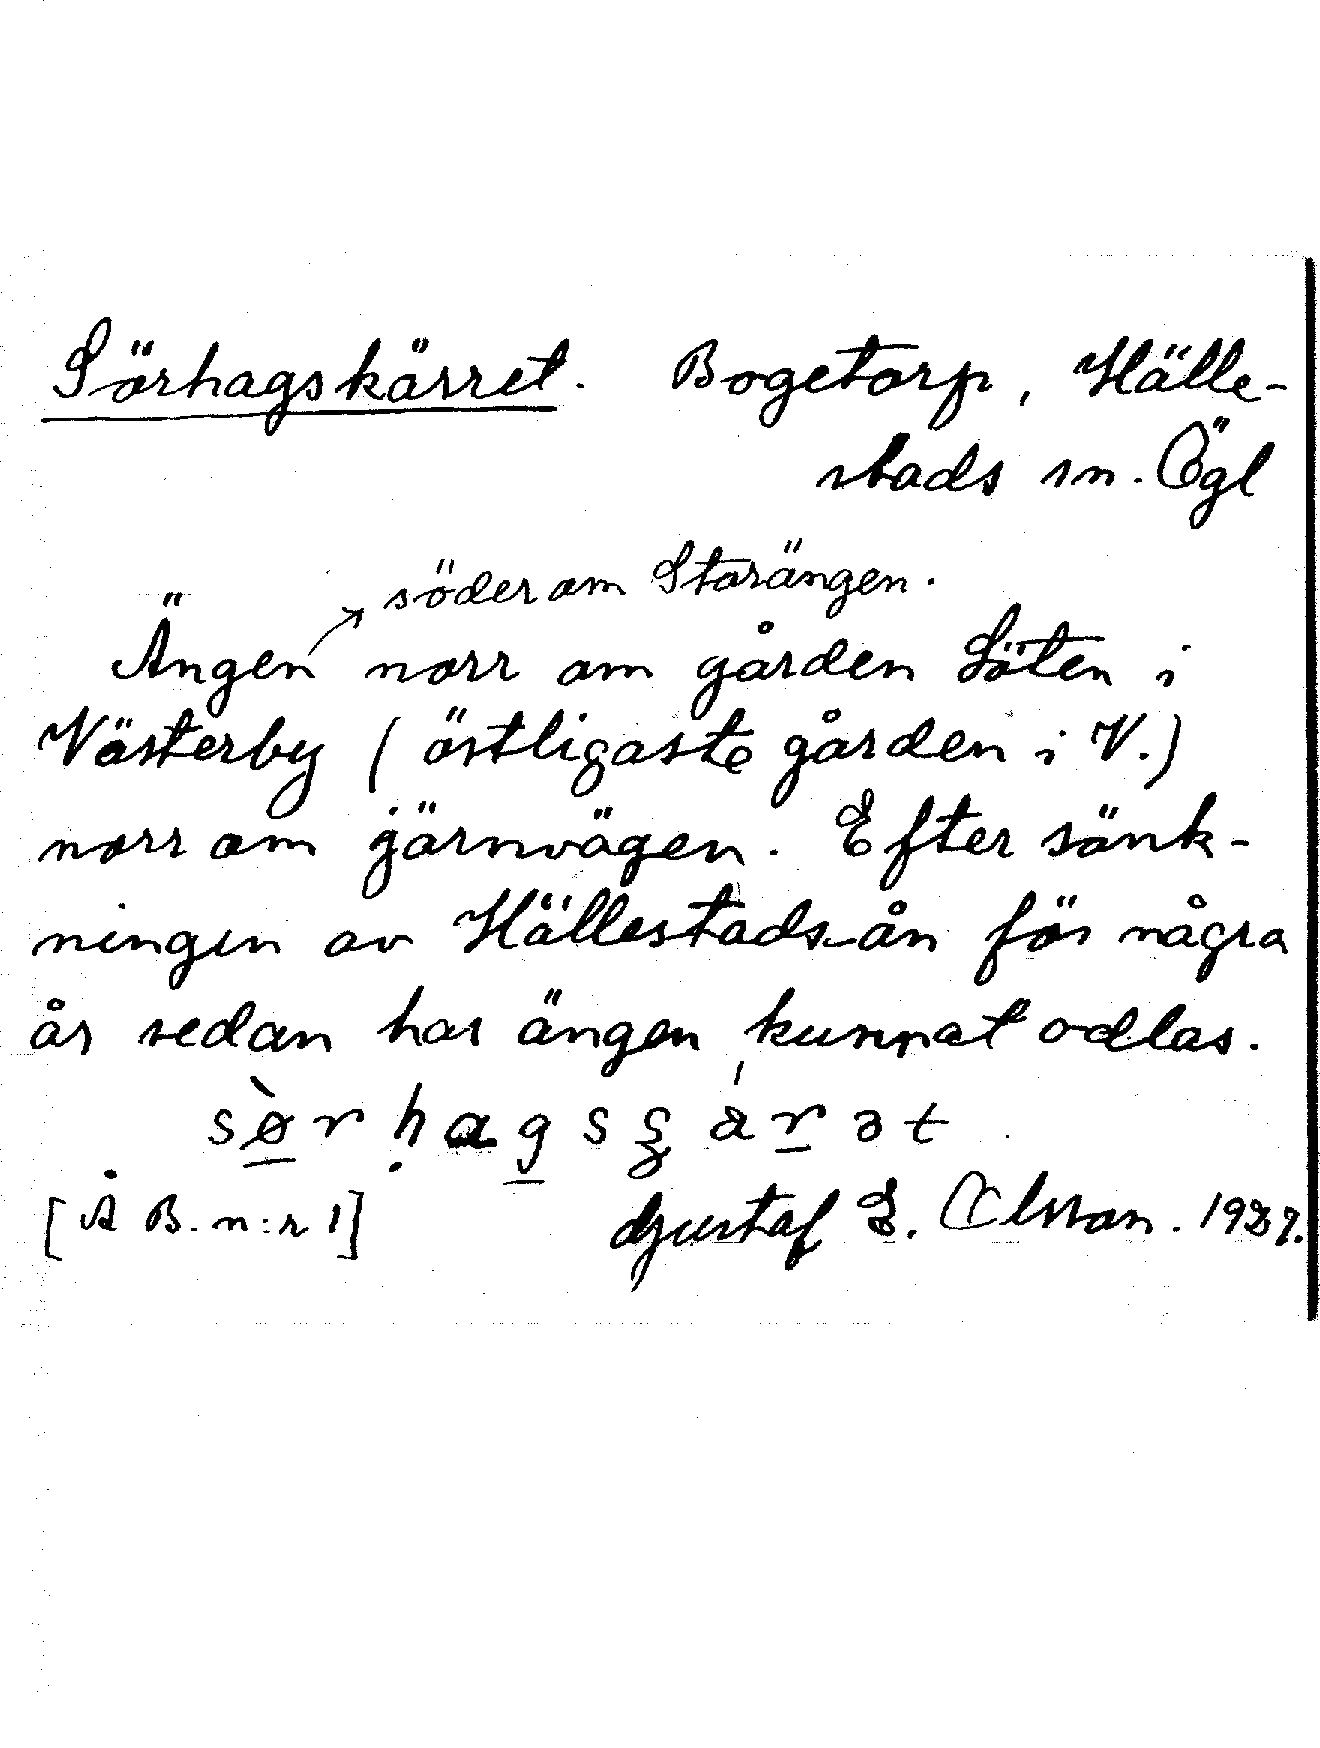 Sörhagskärret. Bogetorp, Hälle-
stads sn. Ögl
söder om Storängen.
Ängen norr om gården Löten i
Västerby (östligaste gården i V.)
norr om järnvägen. Efter sänk-
ningen av Hällestads-ån för några
år sedan har ängen kunnat odlas.
sø̀rhagsʂä́rət
[Å B. n:r 1] Gustaf E. Olsson.